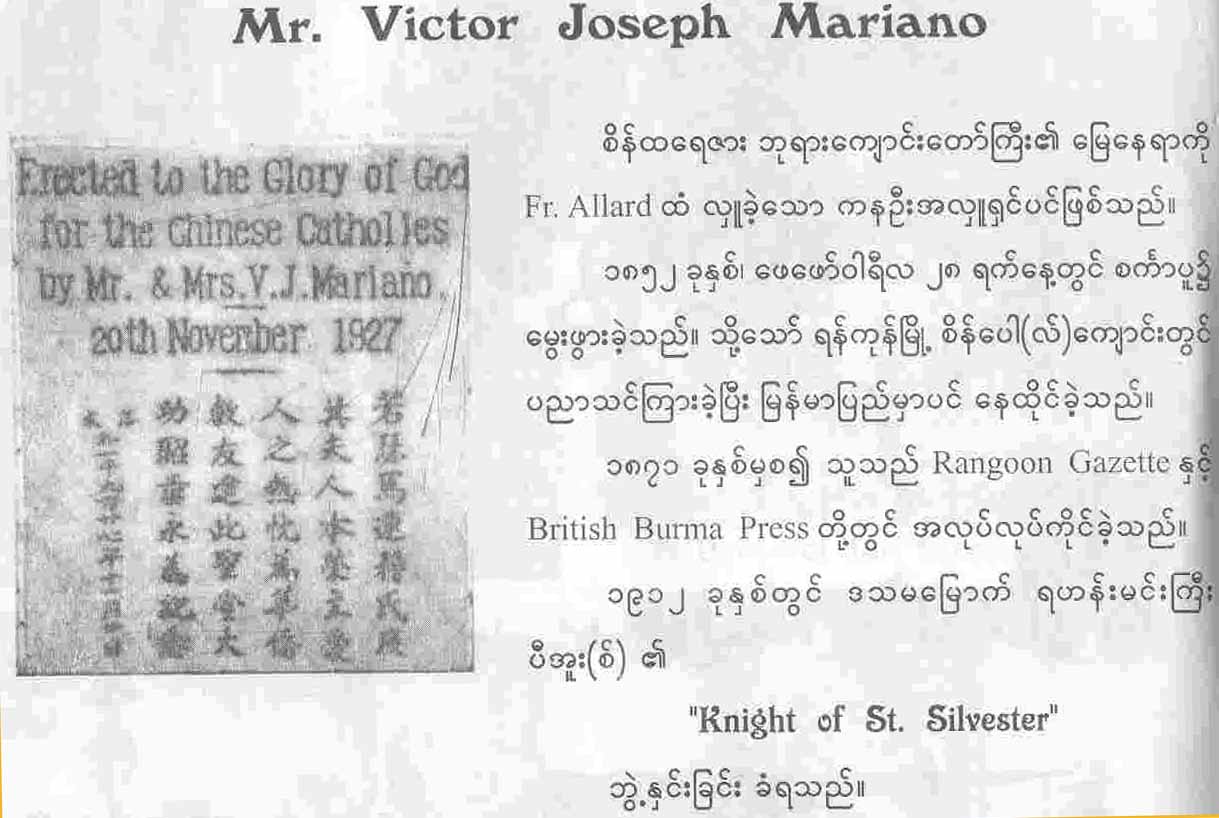 Mr. Victor Joseph Mariano
Erected to the Glory of God
for the Chinese Catholics
by Mr. & Mrs. V. J. Mariano.
20th November 1927
其夫人本蒙主愛
人之熱忱為華僑
教友建此聖堂大
功昭著永為紀念
စိန်ထရေဇား ဘုရားကျောင်းတော်ကြီး၏ မြေနေရာကို
Fr. Allard ထံ လှူခဲ့သော ကနဦးအလှူရှင်ပင်ဖြစ်သည်။
၁၈၅၂ ခုနှစ်၊ ဖေဖော်ဝါရီလ ၂၈ ရက်နေ့တွင် စင်္ကာပူ၌
မွေးဖွားခဲ့သည်။ သို့သော် ရန်ကုန်မြို့ စိန်ပေါ(လ်)ကျောင်းတွင်
ပညာသင်ကြားခဲ့ပြီး မြန်မာပြည်မှာပင် နေထိုင်ခဲ့သည်။
၁၈၇၁ ခုနှစ်မှစ၍ သူသည် Rangoon Gazette နှင့်
British Burma Press တို့တွင် အလုပ်လုပ်ကိုင်ခဲ့သည်။
၁၉၁၂ ခုနှစ်တွင် ဒသမမြောက် ရဟန်းမင်းကြီး
ပီအူး(စ်) ၏
"Knight of St. Silvester"
ဘွဲ့နှင်းခြင်း ခံရသည်။